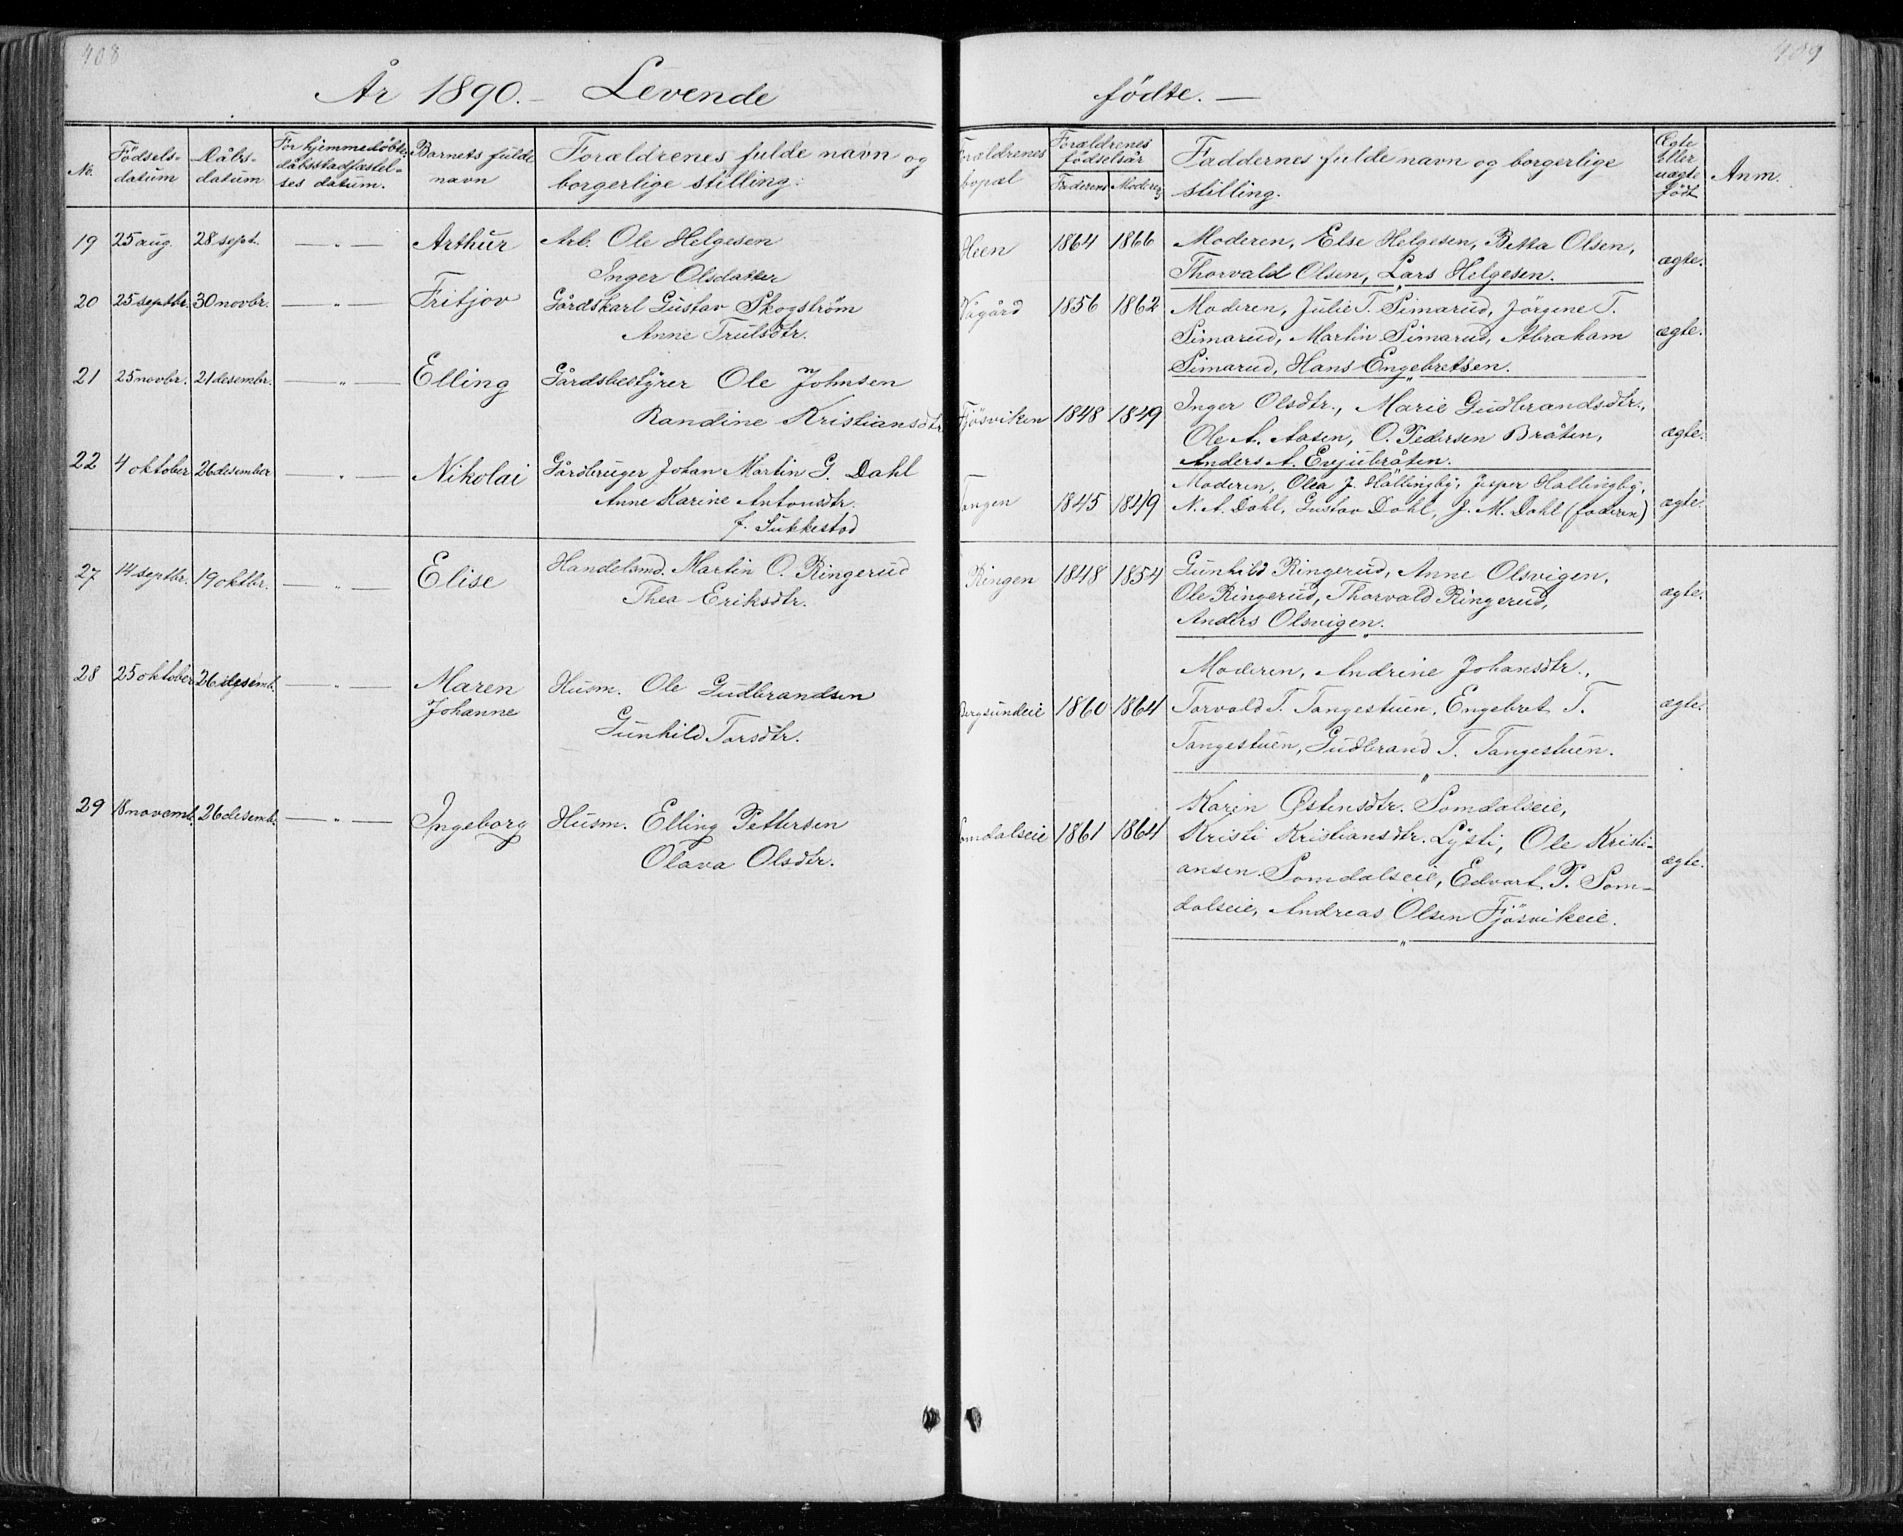 408
År 1890. – Levende
No.
Födsels-
datum
Dåbs-
datum
For hjemmedøbte
dåbsstadfæstel-
ses datum.
Barnets fulde
navn
Forældrenes fulde navn og
borgerlige stilling:
19 25 aug. 28 sept. — „ — Arthur Arb. Ole Helgesen
Inger Olsdatter
20 25 septbr. 30 novbr. — „ — Fritjov Gårdskarl Gustav Skogstrøm
Anne Trulsdtr.
21 25 novbr. 21 desembr. — „ — Elling Gårdsbestyrer Ole Johnsen
Randine Kristiansdtr
22 4 oktober 26 desember — „ — Nikolai Gårdbruger Johan Martin G. Dahl
Anne Karine Antonsdtr.
f. Sukkestad
27 14 septbr. 19 oktbr. — „ — Elise Handelsmd. Martin O. Ringerud
Thea Eriksdtr.
28 25 oktober 26 desemb. — „ — Maren Husm. Ole Gudbrandsen
Johanne
Gunhild Torsdtr.
29 18 novemb. 26 desemb. — „ — Ingeborg Husm. Elling Pettersen
Olava Olsdtr.
409
födte. —
Forældrenes
bopæl
Forældrenes
födselsår
Faderens Moderens
Faddernes fulde navn og borgerlige
stilling.
Ægte
eller
uægte
födt
Anm.
Heen 1864 1866 Moderen, Else Helgesen, Betta Olsen,
Thorvald Olsen, Lars Helgesen. ægte.
Vågård 1856 1862 Moderen, Julie T. Simarud, Jörgine T.
Simarud, Martin Simarud, Abraham ægte.
Simarud, Hans Engebretsen.
Fjösviken 1848 1849 Inger Olsdtr., Marie Gudbrandsdtr.,
Ole A. Aasen, O. Pedersen Bråten, ægte.
Anders A. Evjubråten.
Tangen 1845 1849 Moderen, Olea J. Hallingby, Jesper Hallingby,
N. A. Dahl, Gustav Dahl, J. M. Dahl (faderen) ægte.
Ringen 1848 1854 Gunhild Ringerud, Anne Olsvigen,
Ole Ringerud, Thorvald Ringerud, ægte.
Anders Olsvigen.
Moderen, Andrine Johansdtr.,
Bergsundeie 1860 1864 Torvald T. Tangestuen, Engebret T. ægte.
Tangestuen, Gudbrand T. Tangestuen.
Karin Østensdtr. Somdalseie,
Somdalseie 1861 1864 Kristi Kristiansdtr. Lysti, Ole Kristi-
ansen Somdalseie, Edvart P. Som- ægte.
dalseie, Andreas Olsen Fjösvikeie.